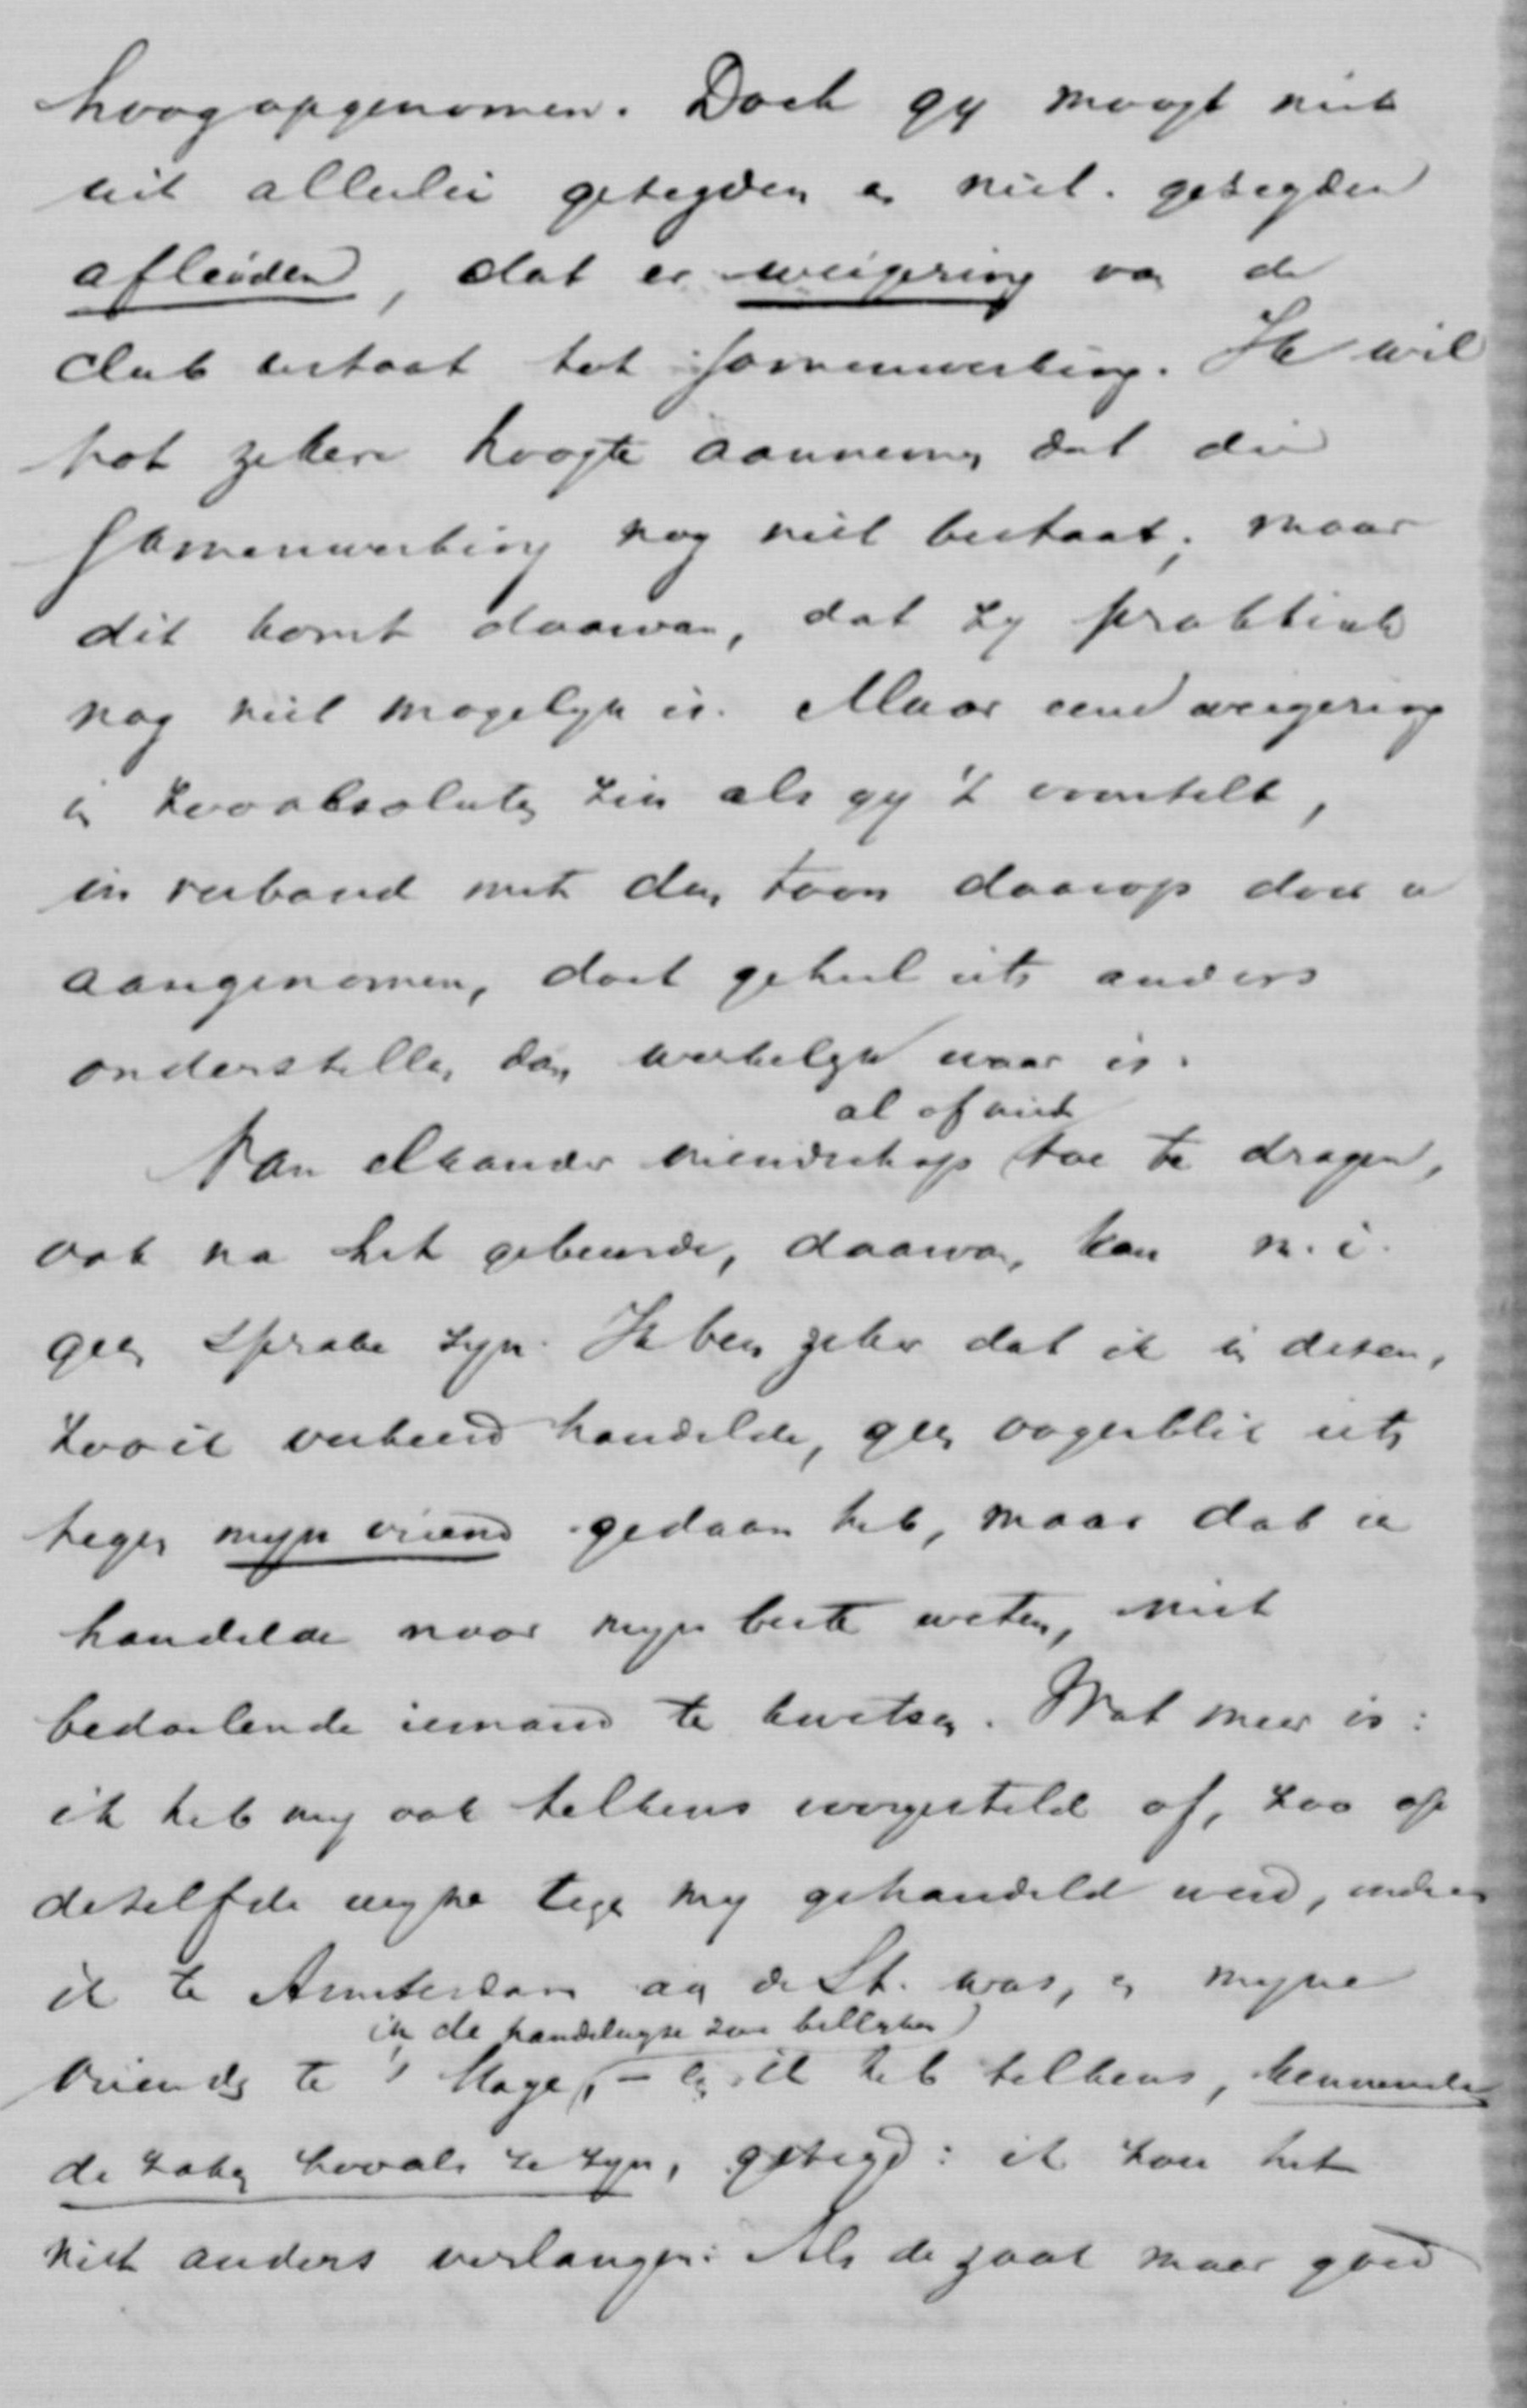 hoog opgenomen. Doch gy moogt niet
uit allerlei gezegden en niet-gezegden
afleiden, dat er weigering van de
club bestaat tot samenwerking. Ik wil
tot zekere hoogte aannemen dat die
samenwerking nog niet bestaat; maar
dit komt daarvan, dat zy praktiek
nog niet mogelyk is. Maar eene weigering
in zoo absoluten zin als gy 't voorstelt,
in verband met den toon daarop door u
aangenomen, doet geheel iets anders
onderstellen dan werkelyk waar is.
al of niet
Van elkander vriendschap toe te dragen,
ook na het gebeurde, daarvan kan m.i.
geen sprake zyn. Ik ben zeker dat ik in dezen,
zoo ik verkeerd handelde, geen oogenblik iets
tegen myn vriend gedaan heb, maar dat ik
handelde naar myn beste weten, niet
bedoelende iemand te kwetsen. Wat meer is:
ik heb my ook telkens voorgesteld of, zoo op
dezelfde wyze tegen my gehandeld werd, indien
ik te Amsterdam aan de St. was, en myne
in de handelwyze zou billyken
vrienden te 's Hage, – en ik heb telkens, kennende
de zaken zooals ze zyn, gezegd: ik zou het
niet anders verlangen: Als de zaak maar goed